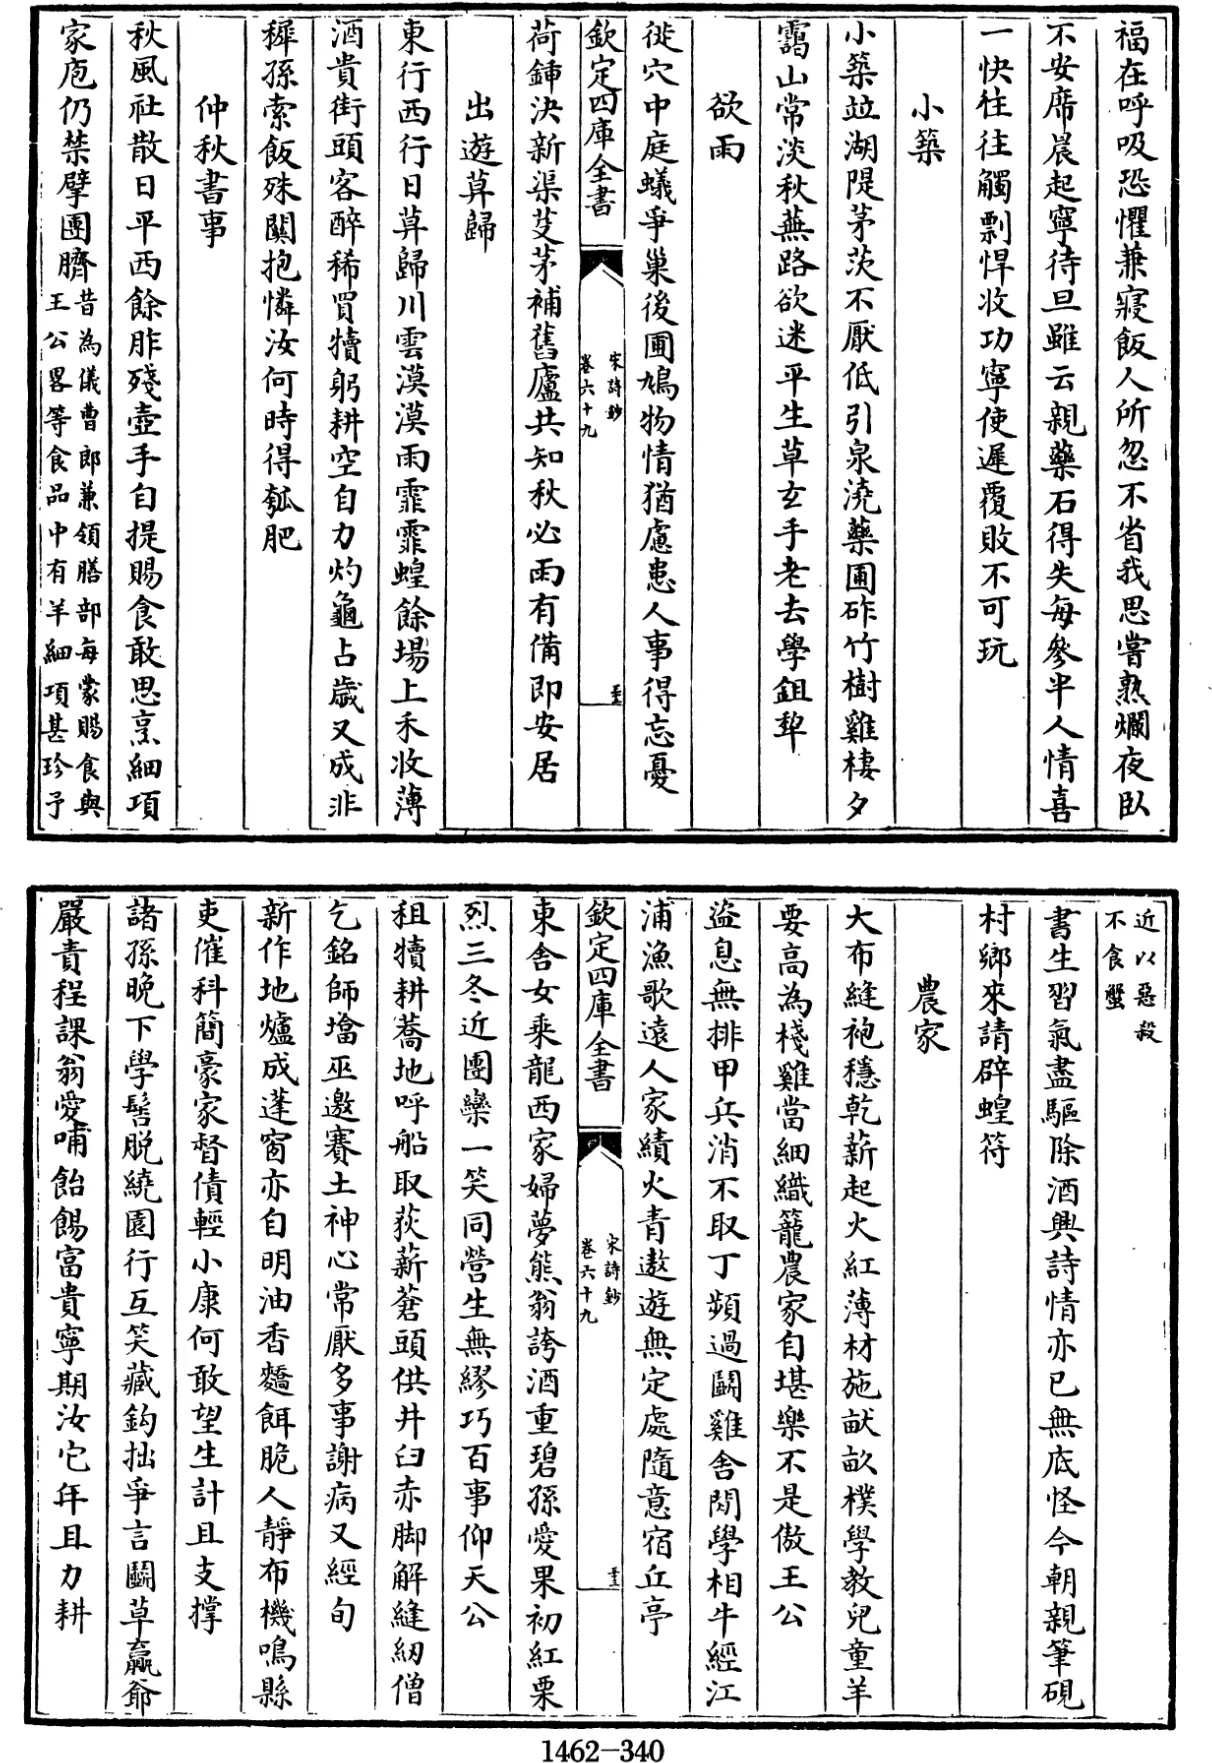 福在呼吸恐懼兼寢飯人所忽不省我思嘗熟爛夜臥
不安席晨起寧待旦雖云親藥石得失每參半人情喜
一快往往觸剽悍收功寧使遲覆敗不可玩
小築
小築竝湖隄茅茨不厭低引泉澆藥圃砟竹樹雞棲夕
靄山常淡秋蕪路欲迷平生草玄手老去學鉏犂
欲雨
徙穴中庭蟻爭巢後圃鳩物情猶慮患人事得忘憂
欽定四庫全書
宋詩鈔
卷六十九
荷鍤決新渠芟茅補舊廬共知秋必雨有備即安居
出遊暮歸
東行西行日暮歸川雲漠漠雨霏霏蝗餘場上禾收薄
酒貴街頭客醉稀買犢躬耕空自力灼龜占歲又成非
穉孫索飯殊關抱憐汝何時得瓠肥
仲秋書事
秋風社散日平西餘胙殘壺手自提賜食敢思烹細項
家庖仍禁擘團臍
昔為儀曹郎兼領膳部每蒙賜食與
王公畧等食品中有羊細項甚珍予
近以惡殺
不食蟹
書生習氣盡驅除酒興詩情亦已無底怪今朝親筆硯
村鄉來請辟蝗符
農家
大布縫袍穩乾薪起火紅薄材施畎畝樸學教兒童羊
要高為棧雞當細織籠農家自堪樂不是傲王公
盜息無排甲兵消不取丁頻過鬭雞舍閒學相牛經江
浦漁歌遠人家績火青遨遊無定處隨意宿丘亭
欽定四庫全書
宋詩鈔
卷六十九
東舍女乘龍西家婦夢熊翁誇酒重碧孫愛果初紅栗
烈三冬近團欒一笑同營生無繆巧百事仰天公
租犢耕蕎地呼船取荻薪蒼頭供井臼赤脚解縫紉僧
乞銘師墖巫邀賽土神心常厭多事謝病又經旬
新作地爐成蓬窗亦自明油香麷餌脆人靜布機鳴縣
吏催科簡豪家督債輕小康何敢望生計且支撑
諸孫晚下學髻脱繞園行互笑藏鈎拙爭言鬭草贏爺
嚴責程課翁愛哺飴餳富貴寧期汝它年且力耕
1462-340